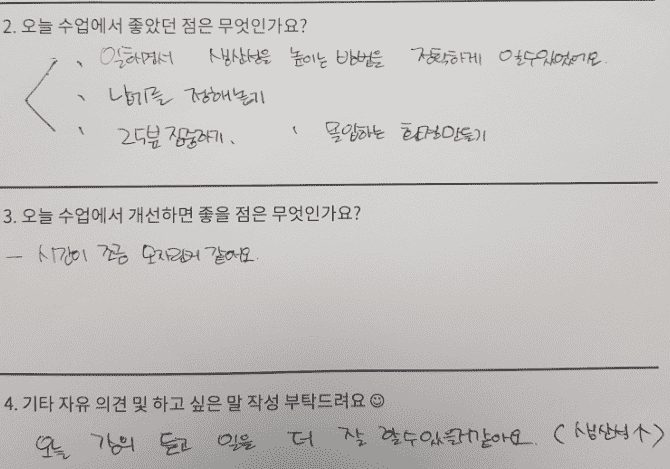 2. 오늘 수업에서 좋았던 점은 무엇인가요?
、 일하면서 생산성을 높이는 방법을 정확하게 알수있었어요.
、 납기를 정해놓기
、 25분 집중하기. 、 몰입하는 환경만들기
3. 오늘 수업에서 개선하면 좋을 점은 무엇인가요?
— 시간이 조금 모자란거 같아요.
4. 기타 자유 의견 및 하고 싶은 말 작성 부탁드려요☺
오늘 강의 듣고 일을 더 잘 할수있을거같아요. (생산성↑)